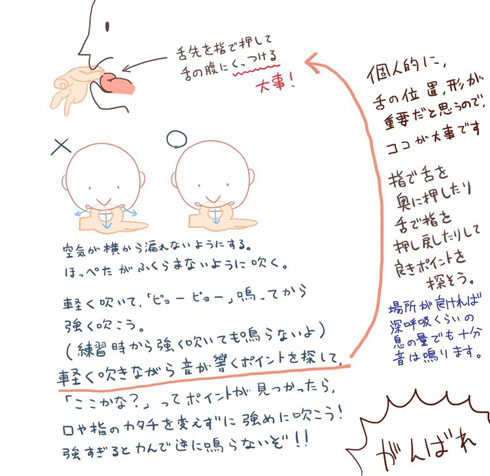 舌先を指で押して
舌の腹にくっつける
大事！
個人的に、
舌の位置,形が
重要だと思うので、
ココが大事です
指で舌を
奥に押したり
舌で指を
押し戻したりして
良きポイントを
探そう。
場所が良ければ
深呼吸くらいの
息の量でも十分
音は鳴ります。
×
○
空気が横から漏れないようにする。
ほっぺたがふくらまないように吹く。
軽く吹いて、「ピョーピョー」鳴ってから
強く吹こう。
(練習時から強く吹いても鳴らないよ)
軽く吹きながら音が響くポイントを探して、
「ここかな？」ってポイントが見つかったら、
口や指のカタチを変えずに強めに吹こう！
強すぎるとかんで逆に鳴らないぞ!!
がんばれ